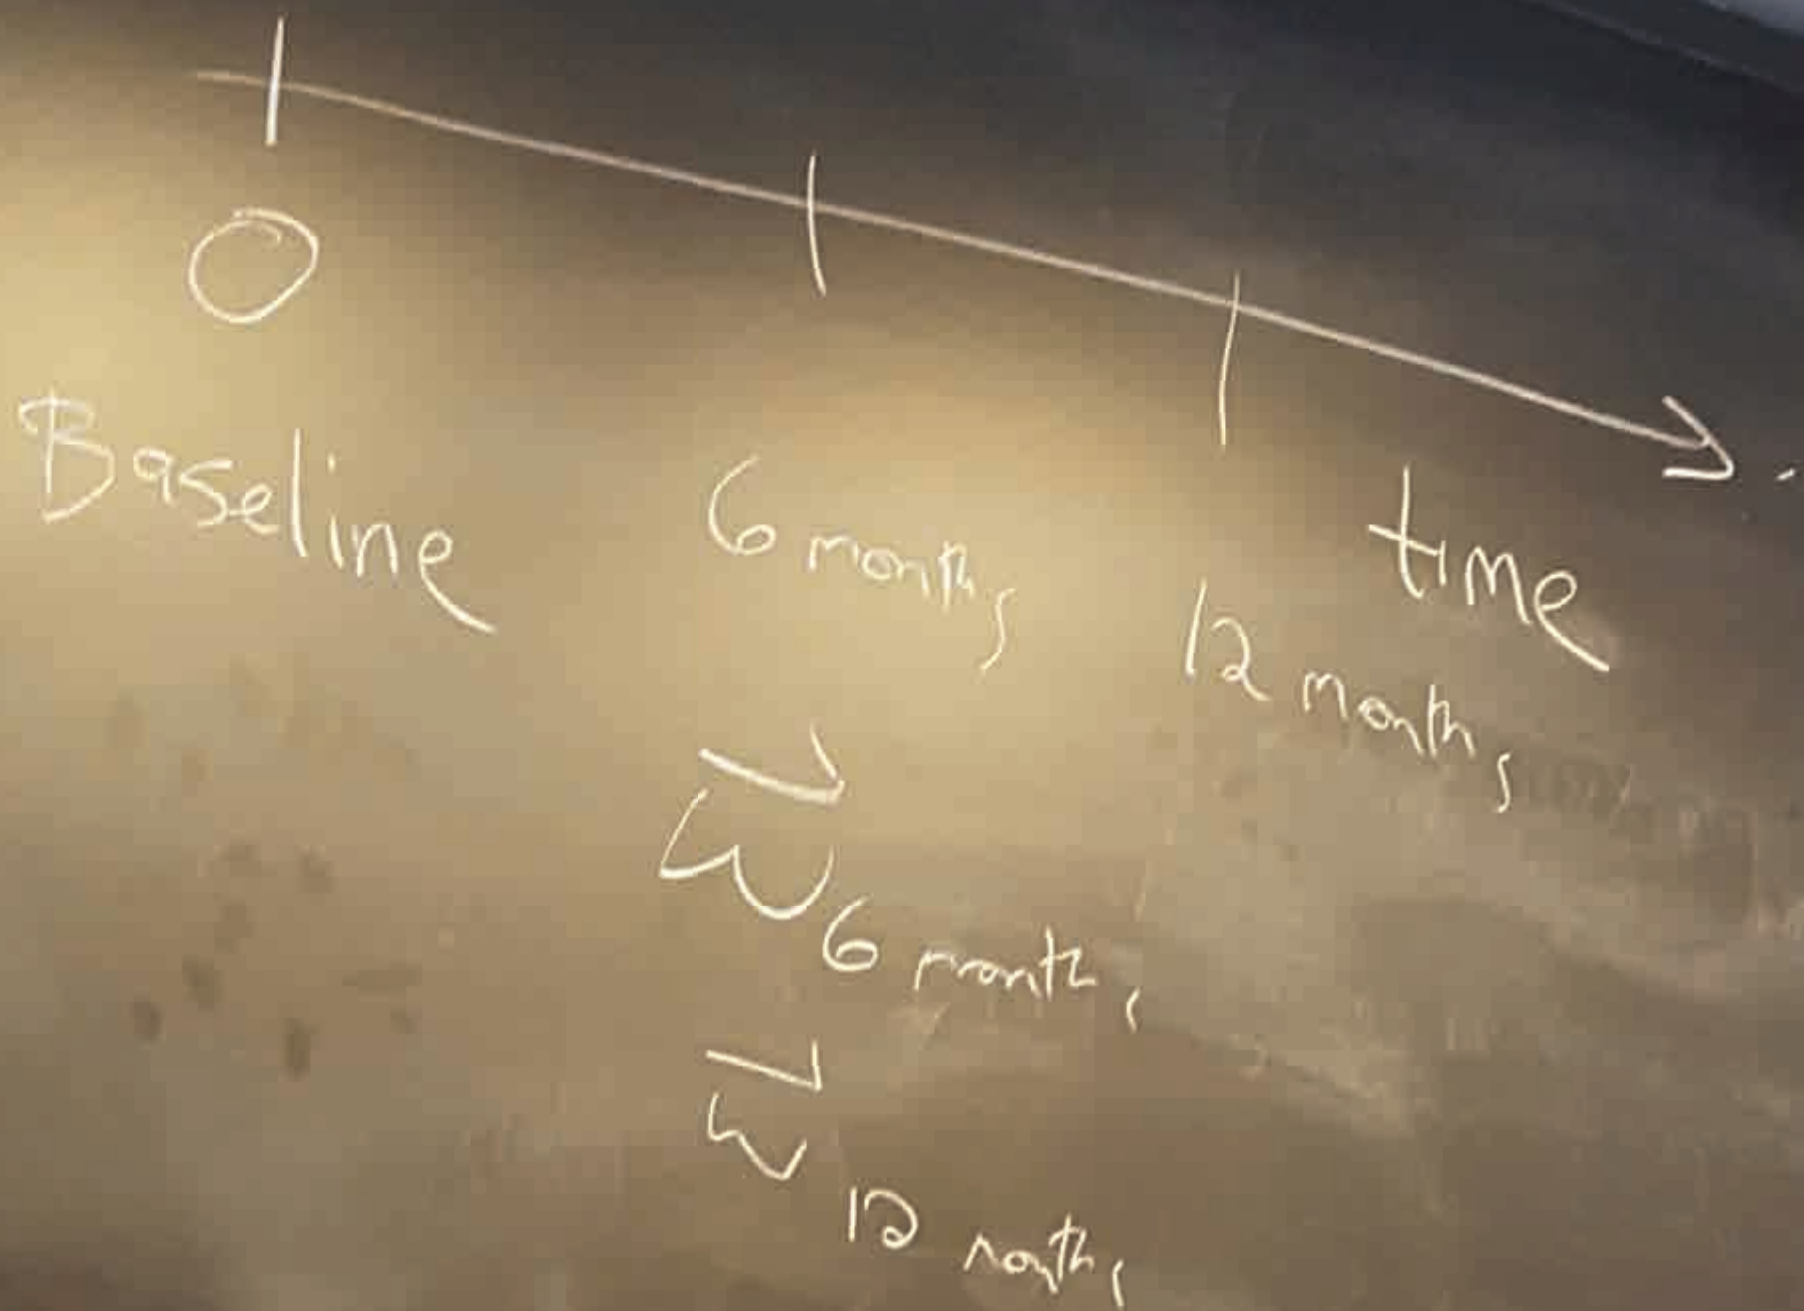 0
Baseline
6 months
12 months
time
w⃗ 6 months
w⃗ 12 months